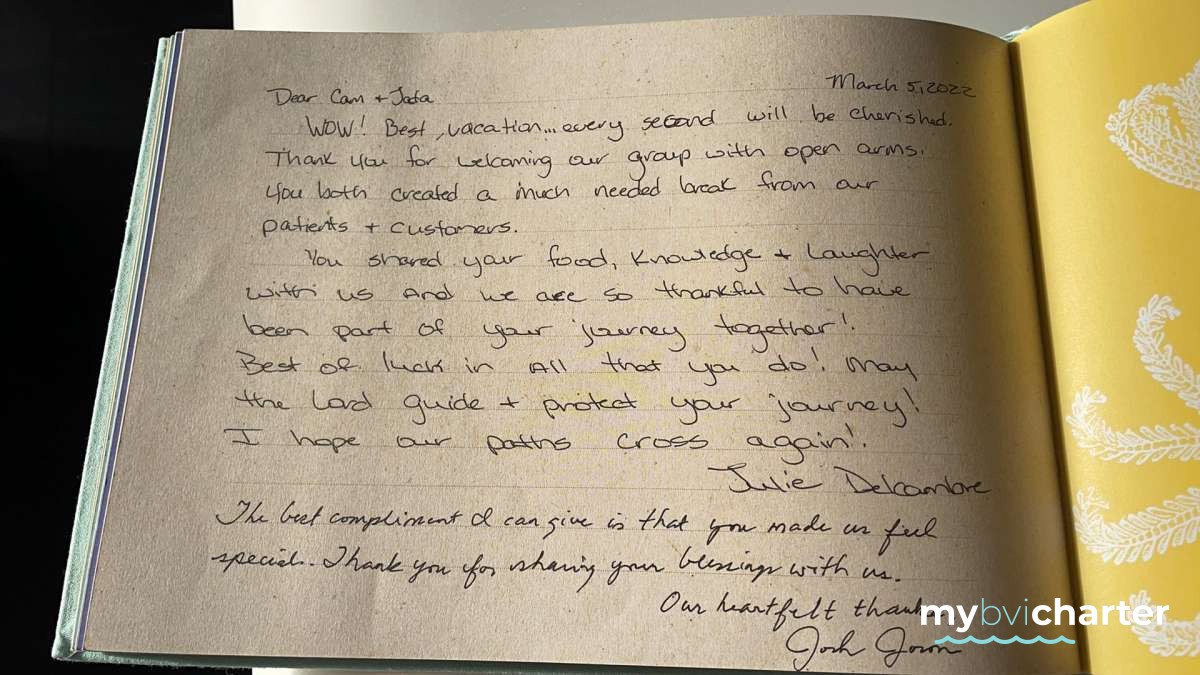 March 5, 2022
Dear Cam +
WOW! Best vacation... every second will be cherished.
Thank you for welcoming our group with open arms.
You both created a much needed break from our
patients + customers.
You shared your food, knowledge + laughter
with us And we are so thankful to have
been part of your journey together!
Best of luck in All that you do! May
the Lord guide + protect your journey!
I hope our paths cross again!
Julie Delcambre
The best compliment I can give is that you made us feel
special. Thank you for sharing your blessings with us.
Our heartfelt thanks
Josh
mybvicharter